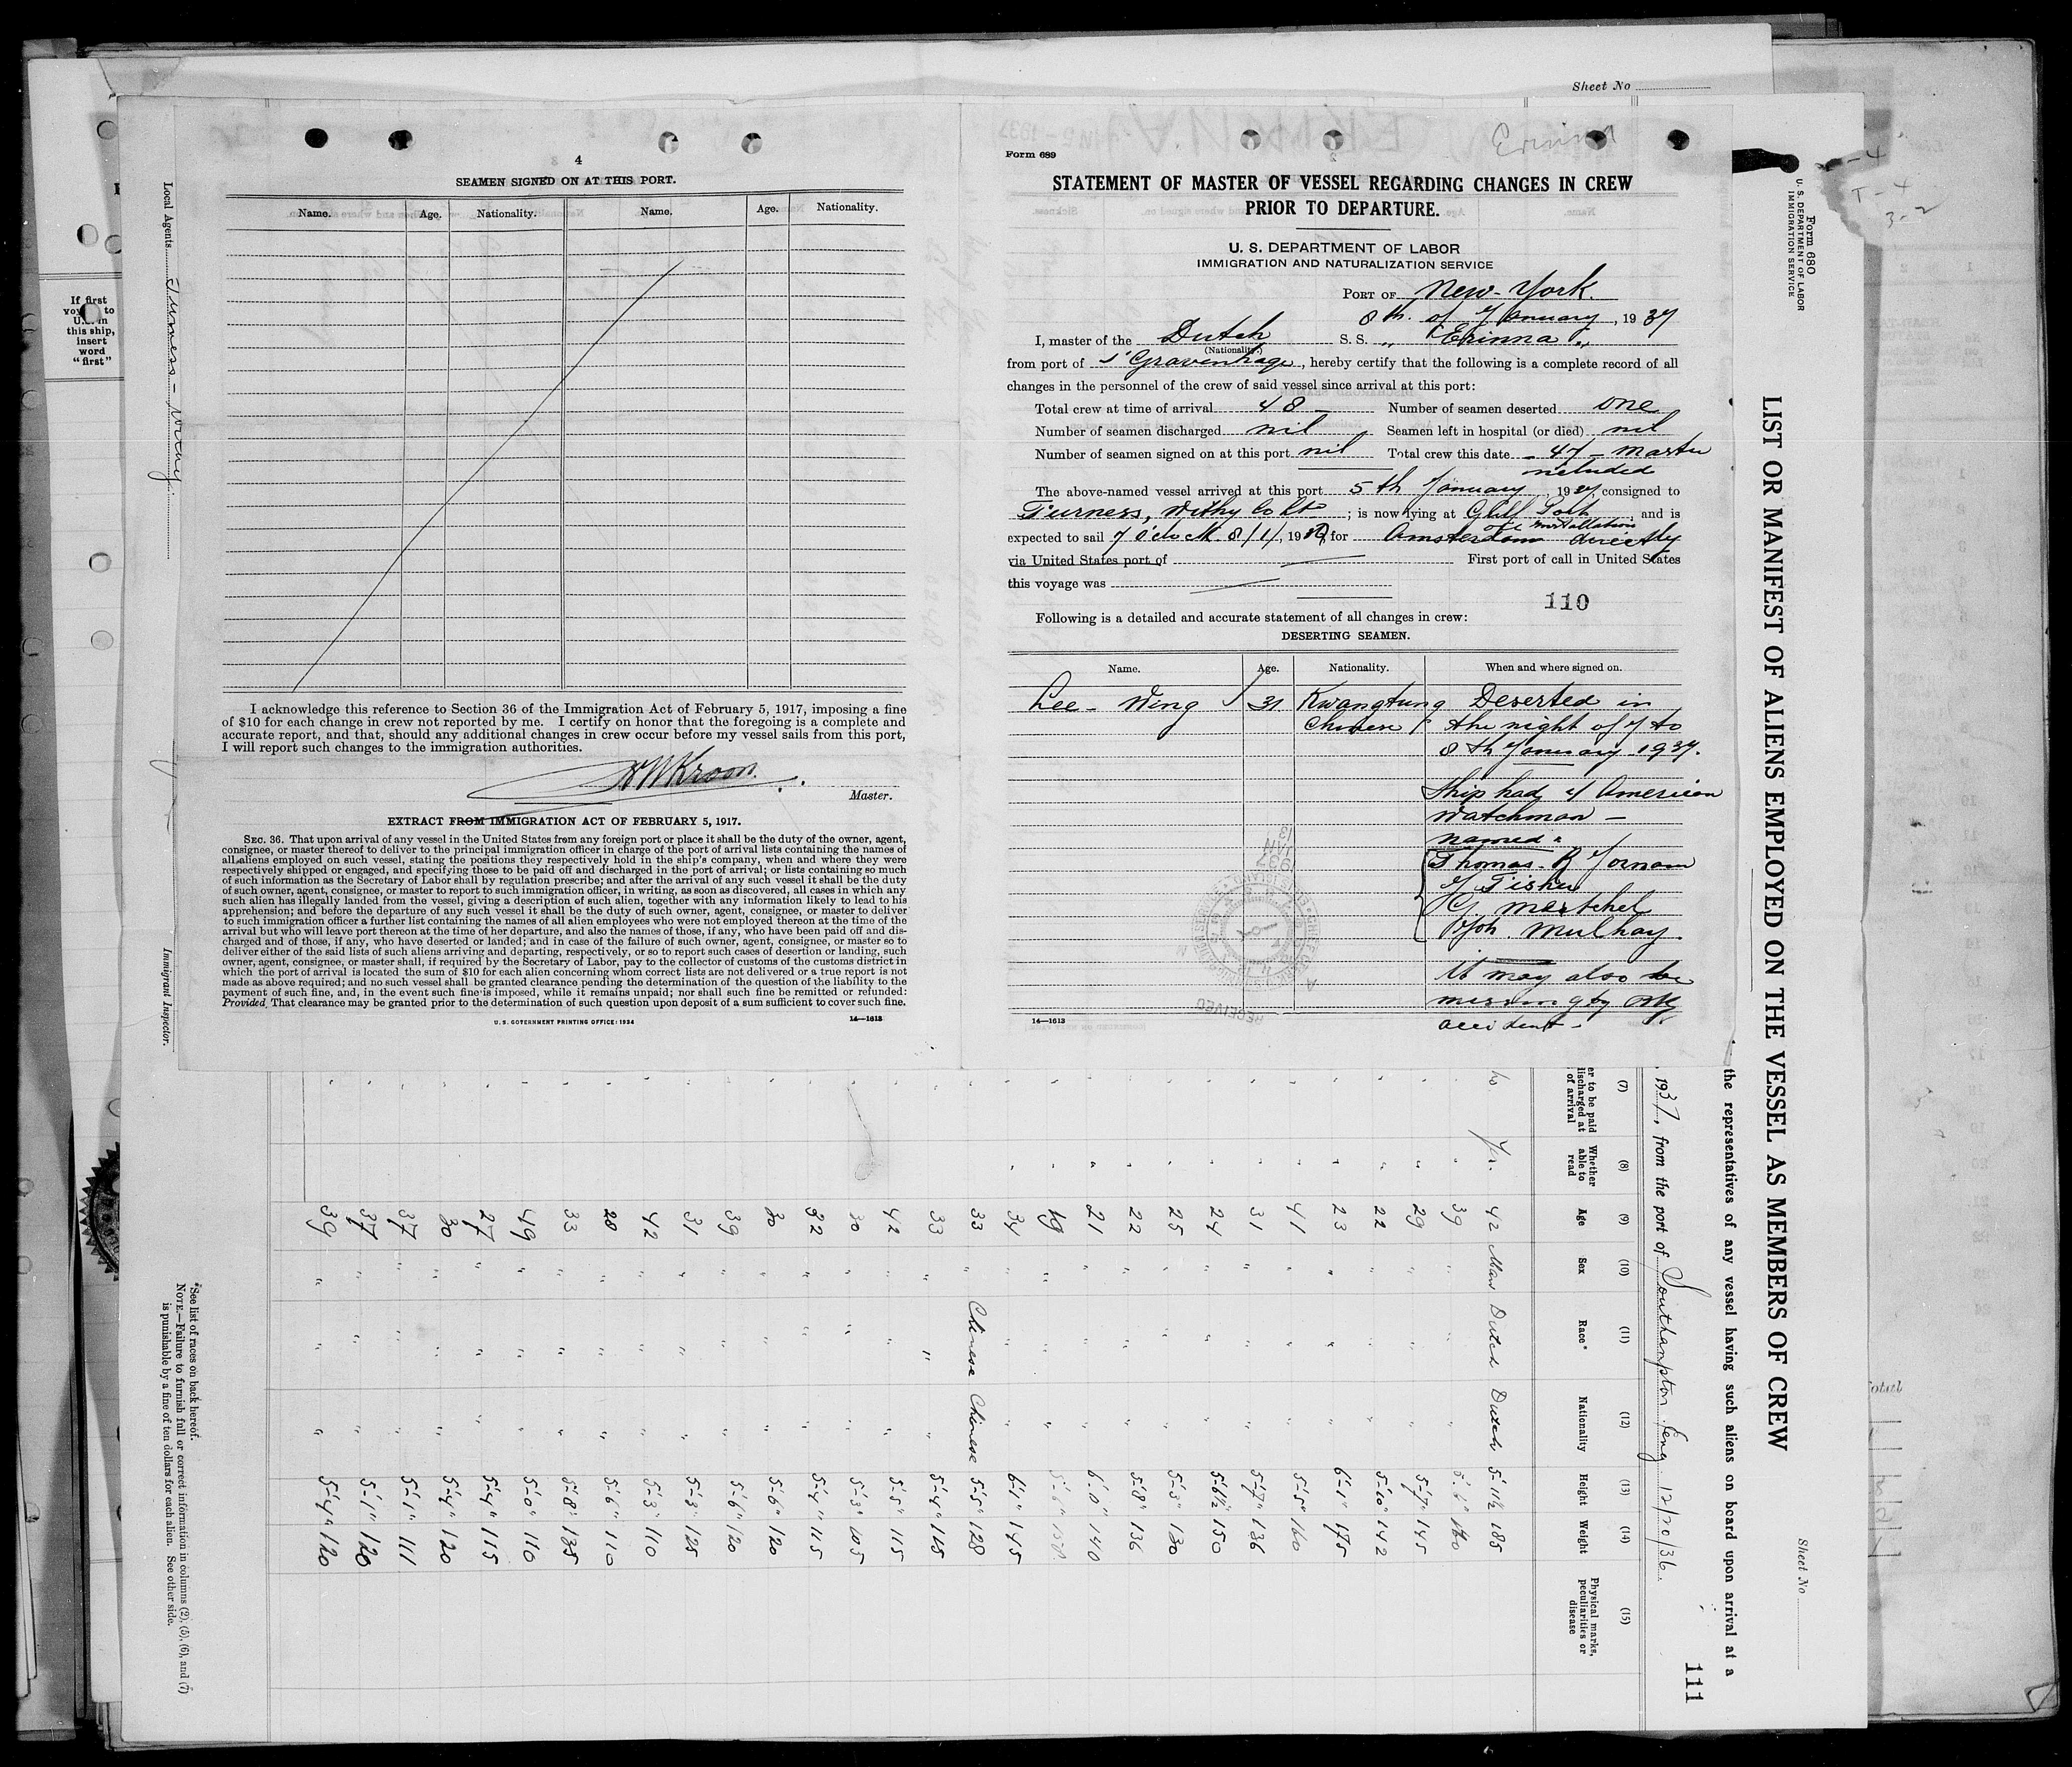 Sheet No
4
SEAMEN SIGNED ON AT THIS PORT.
Name. Age. Nationality. Name. Age. Nationality.
I acknowledge this reference to Section 36 of the Immigration Act of February 5, 1917, imposing a fine
of $10 for each change in crew not reported by me. I certify on honor that the foregoing is a complete and
accurate report, and that, should any additional changes in crew occur before my vessel sails from this port,
I will report such changes to the immigration authorities.
Kroon.
Master.
EXTRACT FROM IMMIGRATION ACT OF FEBRUARY 5, 1917.
SEC. 36. That upon arrival of any vessel in the United States from any foreign port or place it shall be the duty of the owner, agent,
consignee, or master thereof to deliver to the principal immigration officer in charge of the port of arrival lists containing the names of
all aliens employed on such vessel, stating the positions they respectively hold in the ship's company, when and where they were
respectively shipped or engaged, and specifying those to be paid off and discharged in the port of arrival; or lists containing so much
of such information as the Secretary of Labor shall by regulation prescribe; and after the arrival of any such vessel it shall be the duty
of such owner, agent, consignee, or master to report to such immigration officer, in writing, as soon as discovered, all cases in which any
such alien has illegally landed from the vessel, giving a description of such alien, together with any information likely to lead to his
apprehension; and before the departure of any such vessel it shall be the duty of such owner, agent, consignee, or master to deliver
to such immigration officer a further list containing the names of all alien employees who were not employed thereon at the time of the
arrival but who will leave port thereon at the time of her departure, and also the names of those, if any, who have been paid off and dis-
charged and of those, if any, who have deserted or landed; and in case of the failure of such owner, agent, consignee, or master so to
deliver either of the said lists of such aliens arriving and departing, respectively, or so to report such cases of desertion or landing, such
owner, agent, consignee, or master shall, if required by the Secretary of Labor, pay to the collector of customs of the customs district in
which the port of arrival is located the sum of $10 for each alien concerning whom correct lists are not delivered or a true report is not
made as above required; and no such vessel shall be granted clearance pending the determination of the question of the liability to the
payment of such fine, and, in the event such fine is imposed, while it remains unpaid; nor shall such fine be remitted or refunded:
Provided, That clearance may be granted prior to the determination of such question upon deposit of a sum sufficient to cover such fine.
U. S. GOVERNMENT PRINTING OFFICE: 1934 14—1613
Erinna
Form 689
STATEMENT OF MASTER OF VESSEL REGARDING CHANGES IN CREW
PRIOR TO DEPARTURE.
U. S. DEPARTMENT OF LABOR
IMMIGRATION AND NATURALIZATION SERVICE
PORT OF New-York.
8th. of January, 1937
I, master of the Dutch S. S. "Erinna",
(Nationality.)
from port of s'Gravenhage, hereby certify that the following is a complete record of all
changes in the personnel of the crew of said vessel since arrival at this port:
Total crew at time of arrival 48 — Number of seamen deserted one
Number of seamen discharged nil Seamen left in hospital (or died) nil
Number of seamen signed on at this port nil Total crew this date - 47 - master
included
The above-named vessel arrived at this port 5th January, 1937, consigned to
Furness, Withy Co Ld; is now lying at Gulf Port, and is
oil installation
expected to sail 7 o'clock 8/1/, 1937 for Amsterdam directly
via United States port of — First port of call in United States
this voyage was —
110
Following is a detailed and accurate statement of all changes in crew:
DESERTING SEAMEN.
Name. Age. Nationality. When and where signed on.
Lee - Wing 31 Kwangtung Deserted in
Chinese the night of 7 to
8th January 1937.
Ship had 4 American
Watchman —
named:
Thomas R
Fisher
Mulhay.
It may also be
missing by
accident -
14—1613
RECEIVED
1937 JAN 13
Form 680
U. S. DEPARTMENT OF LABOR
IMMIGRATION SERVICE
T-4
3-2
LIST OR MANIFEST OF ALIENS EMPLOYED ON THE VESSEL AS MEMBERS OF CREW
Sheet No
the representatives of any vessel having such aliens on board upon arrival at a
, 1937, from the port of Southampton Eng. 12/20/36.
111
(7) (8) (9) (10) (11) (12) (13) (14) (15)
er to be paid
discharged at
of arrival
Whether
able to
read
Age
Sex
Race*
Nationality
Height
Weight
Physical marks,
peculiarities or
disease
no Yes 42 Man Dutch Dutch 5-11½ 185
" 39 " " " 5-6" 160
" 29 " " " 5-7" 145
" 22 " " " 5-10" 142
" 23 " " " 6-1" 175
" 41 " " " 5-5" 160
" 31 " " " 5-7" 136
" 24 " " " 5-6½" 150
" 25 " " " 5-5" 130
" 22 " " " 5-8" 136
" 21 " " " 6-0" 140
" 19 " " "
" 34 " " " 6-1" 145
33 " Chinese Chinese 5-5" 128
33 " " " 5-4" 118
42 " " " 5-5" 115
30 " " " 5-3" 105
32 " " " 5-4" 115
30 " " " 5-6" 120
39 " " " 5-6" 120
31 " " " 5-3" 125
42 " " " 5-3" 110
28 " " " 5-6" 110
33 " " " 5-8" 135
49 " " " 5-0" 110
27 " " " 5-4" 115
30 " " " 5-4" 120
37 " " " 5-1" 111
37 " " " 5-1" 120
39 " " " 5-4" 120
*See list of races on back hereof.
NOTE.—Failure to furnish full or correct information in columns (2), (5), (6), and (7)
is punishable by a fine of ten dollars for each alien. See other side.
Local Agents Furness-Withy
Immigrant Inspector.
If first
voyage to
U.S. in
this ship,
insert
word
"first"